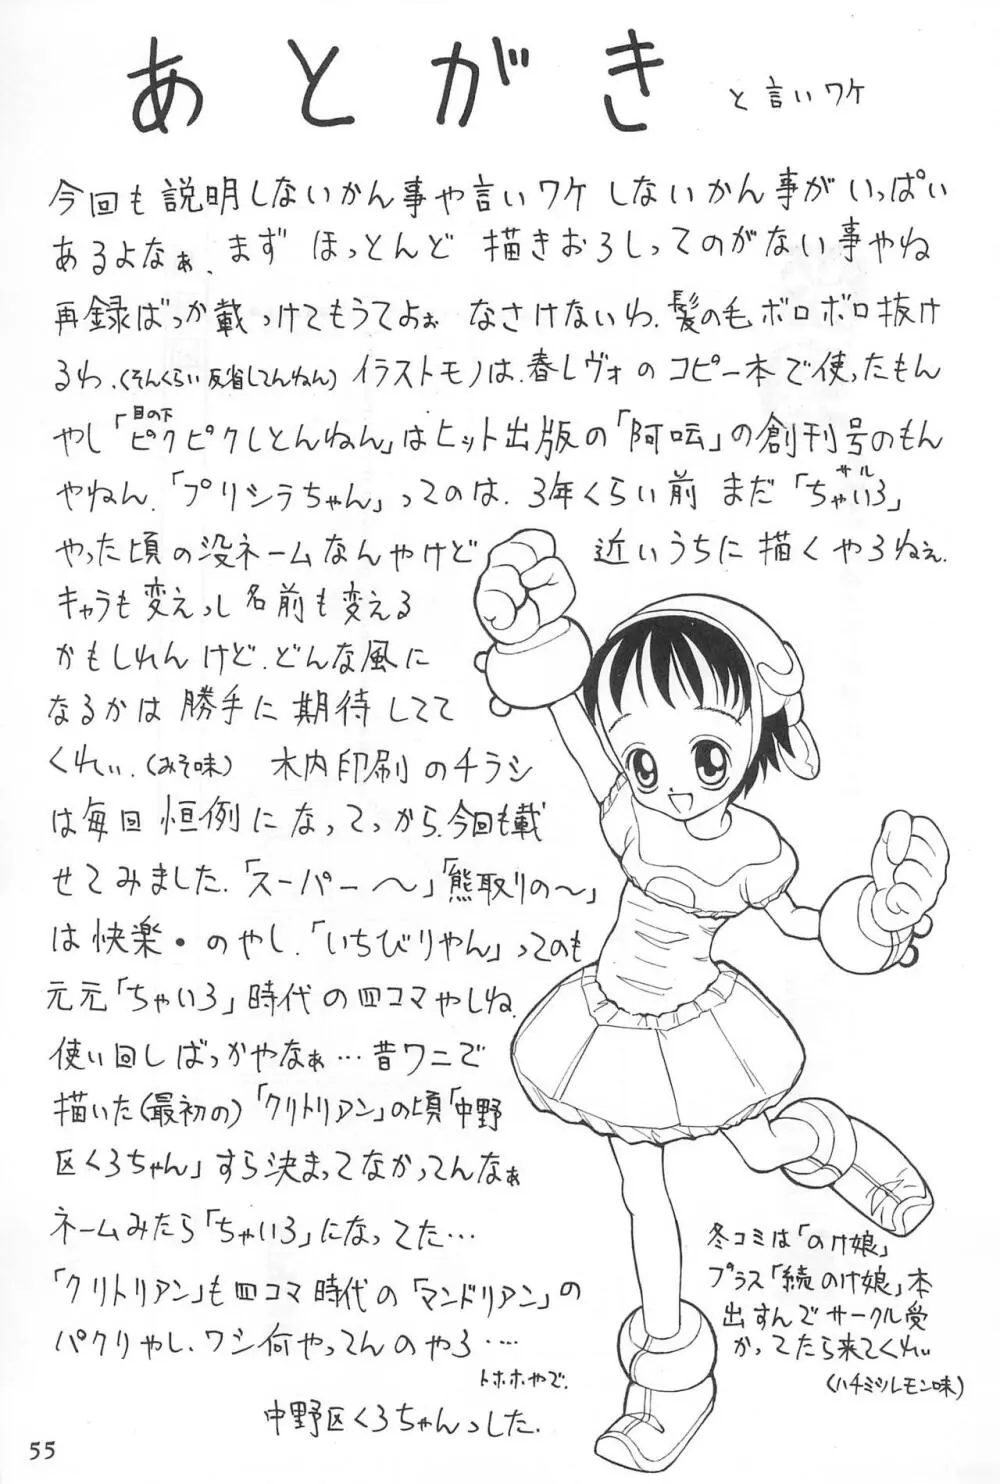 あとがき と言いワケ
今回も説明しないかん事や言いワケしないかん事がいっぱい
あるよなぁ、まず ほっとんど 描きおろしってのがない事やね
再録ばっか載っけてもうてよぉ なさけないわ、髪の毛ボロボロ抜け
るわ、(そんくらい反省してんねん) イラストモノは、春レヴォのコピー本で使ったもん
やし「目の下ピクピクしとんねん」はヒット出版の「阿吽」の創刊号のもん
やねん、「プリシラちゃん」ってのは、3年くらい前 まだ「ちゃいろ」サル
やった頃の没ネームなんやけど 近いうちに描くやろねぇ、
キャラも変えっし名前も変える
かもしれんけど、どんな風に
なるかは勝手に期待してて
くれぃ、(みそ味) 木内印刷のチラシ
は毎回恒例になってっから、今回も載
せてみました、「スーパー〜」「熊取りの〜」
は快楽・のやし、「いちびりやん」ってのも
元元「ちゃいろ」時代の四コマやしね、
使い回しばっかやなぁ…昔ワニで
描いた(最初の)「クリトリアン」の頃「中野
区くろちゃん」すら決まってなかってんなぁ
ネームみたら「ちゃいろ」になってた…
「クリトリアン」も四コマ時代の「マンドリアン」の
パクリやし、ワシ何やってんのやろ……
トホホやで、
中野区くろちゃんっした、
冬コミは「のけ娘」
プラス「続のけ娘」本
出すんでサークル受
かってたら来てくれぃ
(ハチミツレモン味)
55